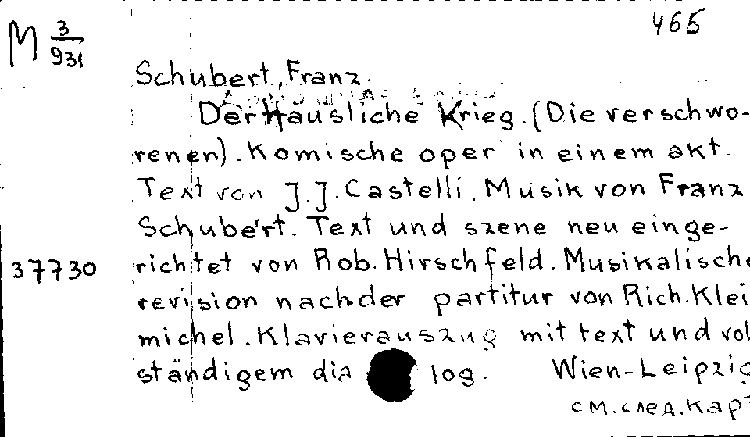 465
M 3/931
Schubert, Franz.
Der häusliche Krieg. (Die verschwo-
renen). Komische oper in einem akt.
Text von J. J. Castelli. Musik von Franz
Schubert. Text und szene neu einge-
37730 richtet von Rob. Hirschfeld. Musikalische
revision nach der partitur von Rich. Klei
michel. Klavierauszug mit text und vol
ständigem dia log. Wien-Leipzig
см. след. карт